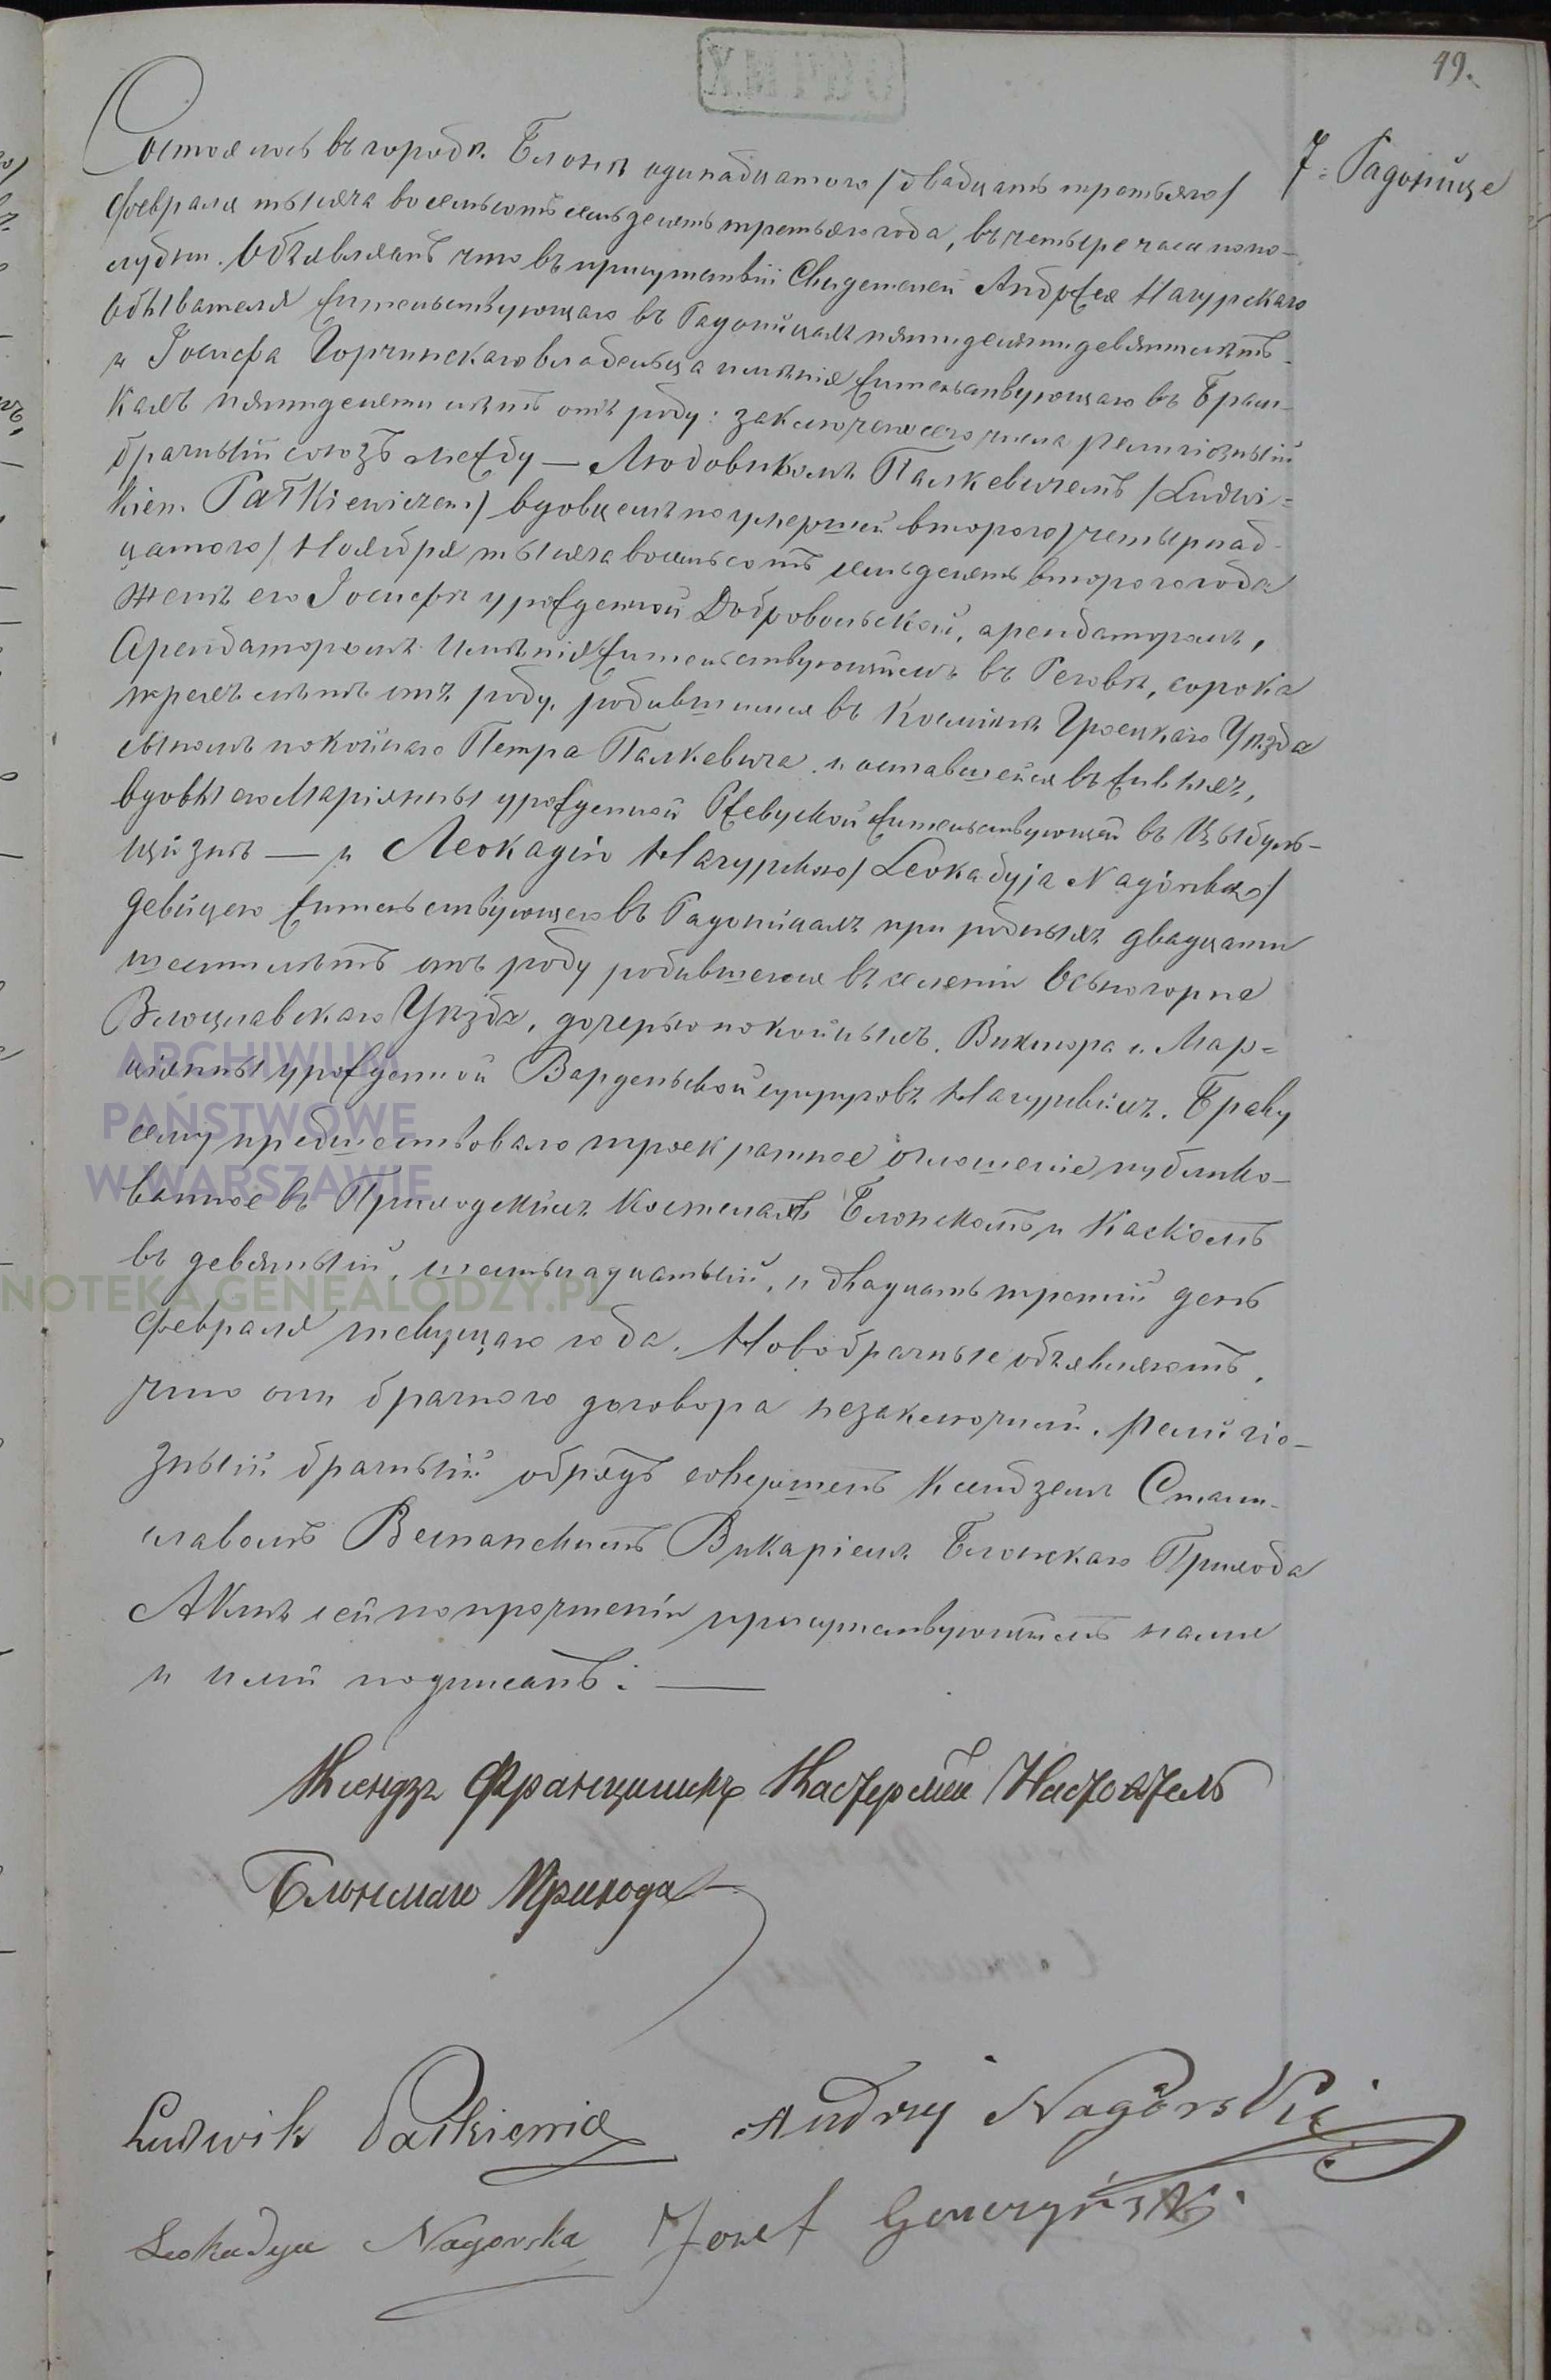 49.
7. Радонице
Состоялось въ городѣ Блоніѣ одинадцатого /двадцать третьяго/
Февраля тысяча восемьсотъ семьдесять третьяго года, въ четыре часа попо-
лудни. Объявляемъ что въ присутствіи Свидетелей Андрея Нагурскаго
Обывателя жительствующаго въ Радоницахъ пятидесяти девяти лѣтъ
и Іосифа Горчинскаго владельца имѣнія жительствующаго въ Брам-
кахъ пятидесяти лѣтъ отъ роду: заключено сего числа религіозный
брачный союзъ между — Людовикомъ Палкевичемъ /Ludwi-
kiem Pałkiewiczem/ вдовцемъ по умершей второго /четырнад-
цатого/ Ноября тысяча восемьсотъ семьдесять второго года
женѣ его Іосифѣ урожденной Добровольской, арендаторомъ,
Арендаторомъ имѣнія жительствующимъ въ Реговѣ, сорока
трехъ лѣтъ отъ роду, родившимся въ Гроецкаго Уѣзда
сыномъ покойнаго Петра Палкевича и оставшейся въ живыхъ,
вдовы его Маріянны урожденной Ржевуской жительствующей въ Цыбуль-
щизнѣ — и Леокадіею Нагурскою /Leokadyją Nagórską/
девицею жительствующею въ Радоницахъ при родныхъ двадцати
шести лѣтъ отъ роду родившеюся въ селеніи
Влоцлавскаго Уѣзда, дочерью покойныхъ Виктора и Мар-
ціянны урожденной Варденской супруговъ Нагурскихъ. Браку
сему предшествовало троекратное оглошеніе публико-
ванное въ Приходскихъ Костелахъ Блонскомъ и Каскомъ
въ девятый, шестьнадцатый, и двадцать третій день
Февраля текущаго года. Новобрачные объявляютъ,
что они брачного договора незаключили. Религіо-
зный брачный обрядъ совершенъ Ксендземъ Стани-
славомъ Викаріемъ Блонскаго Прихода
Актъ сей по прочтеніи присутствующимъ нами
и ими подписанъ: —
Ксендзъ Францишекъ Настоятель
Блонскаго Прихода
Ludwik Pałkiewicz Andrzej Nagórski
Leokadya Nagorska Jozef Gorczyński
ARCHIWUM
PAŃSTWOWE
W WARSZAWIE
NOTEKA.GENEALODZY.PL